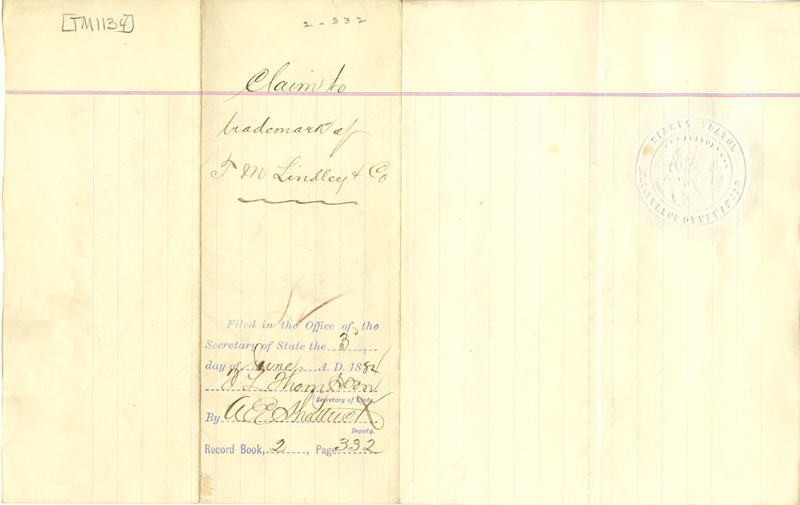 [TM1134]
2-332
Claim to
trademark of
T M Lindley & Co
Filed in the Office of the
Secretary of State the 3
day of June A. D. 1884
T L Thompson
Secretary of State.
By A E Shattuck
Deputy.
Record Book, 2, Page 332